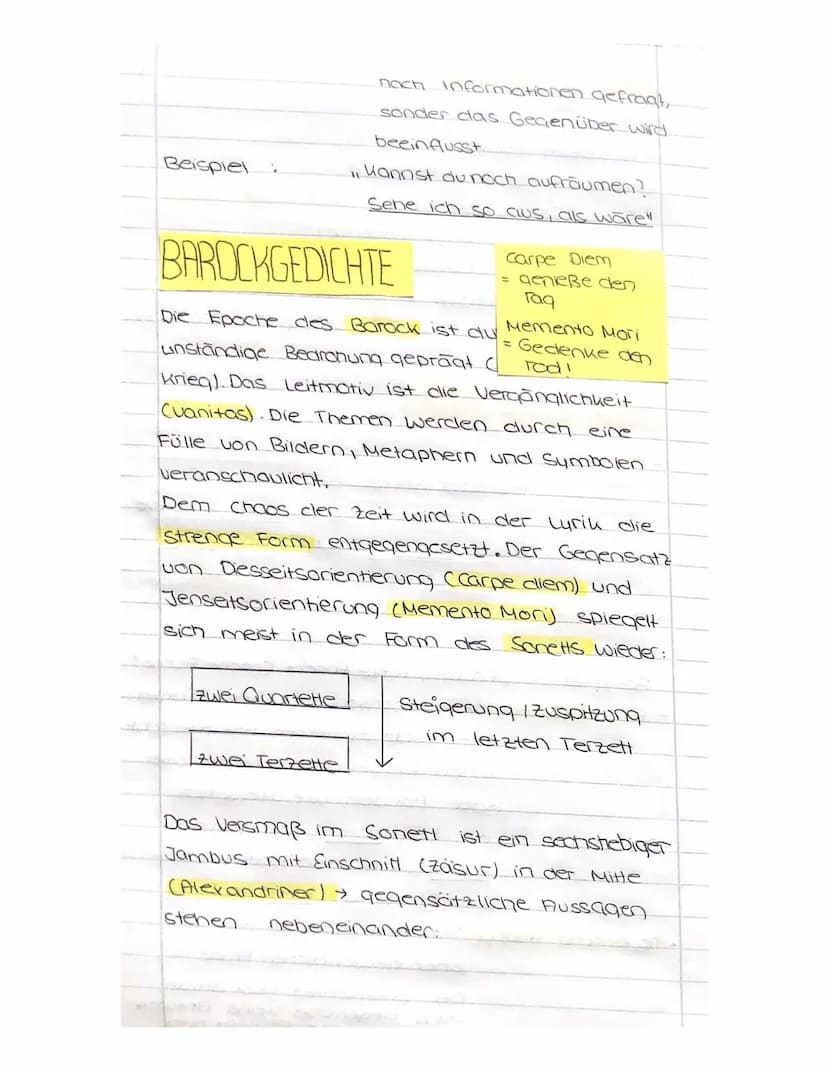 nach Informationen gefragt,
sonder das Gegenüber wird
beeinflusst
Beispiel : „Kannst du noch aufräumen?
Sehe ich so aus, als wäre"
BAROCKGEDICHTE
Carpe Diem
= genieße den
Tag
Memento Mori
= Gedenke den
Tod!
Die Epoche des Barock ist du
unständige Bedrohung geprägt (
Krieg). Das Leitmotiv ist die Vergänglichkeit
(vanitas). Die Themen werden durch eine
Fülle von Bildern, Metaphern und Symbolen
veranschaulicht.
Dem Chaos der Zeit wird in der Lyrik die
strenge Form entgegengesetzt. Der Gegensatz
von Diesseitsorientierung (Carpe diem) und
Jenseitsorientierung (Memento Mori) spiegelt
sich meist in der Form des Sonetts wieder:
zwei Quartette
Steigerung / Zuspitzung
im letzten Terzett
zwei Terzette
Das Versmaß im Sonett ist ein sechshebiger
Jambus mit Einschnitt (Zäsur) in der Mitte
(Alexandriner) → gegensätzliche Aussagen
stehen nebeneinander.